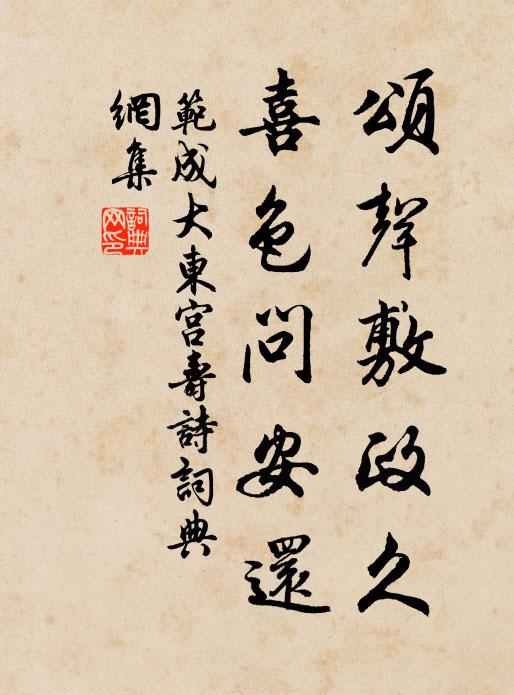 頌聲敷政久
喜色問安還
範成大東宮壽詩詞典
網集
詞典
网印